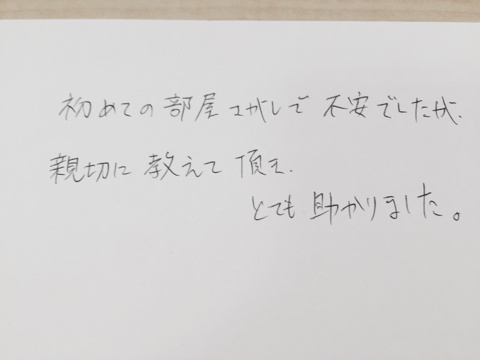 初めての部屋さがしで不安でしたが、
親切に教えて頂き、
とても助かりました。